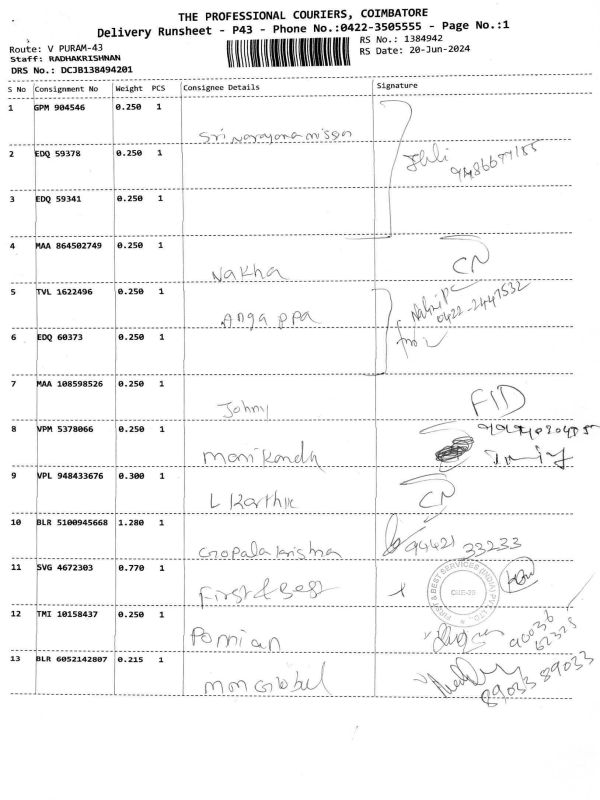 THE PROFESSIONAL COURIERS, COIMBATORE
Delivery Runsheet - P43 - Phone No.:0422-3505555 - Page No.:1
Route: V PURAM-43
RS No.: 1384942
Staff: RADHAKRISHNAN
RS Date: 20-Jun-2024
DRS No.: DCJB138494201
S No Consignment No Weight PCS Consignee Details Signature
1 GPM 904546 0.250 1
Sri Narayana
2 EDQ 59378 0.250 1
3 EDQ 59341 0.250 1
4 MAA 864502749 0.250 1
Nakha CN
5 TVL 1622496 0.250 1
Angappa 0422-2447532
6 EDQ 60373 0.250 1
7 MAA 108598526 0.250 1
Johny FID
8 VPM 5378066 0.250 1
9 VPL 948433676 0.300 1
L Karthik CN
10 BLR 5100945668 1.280 1
Gopalakrishna 94421 33233
11 SVG 4672303 0.770 1
First & Best
FIRST & BEST SERVICES (INDIA) PVT LTD.
12 TMI 10158437 0.250 1
Ponnian 90036
62325
13 BLR 6052142807 0.215 1
mm Global 89033 89033